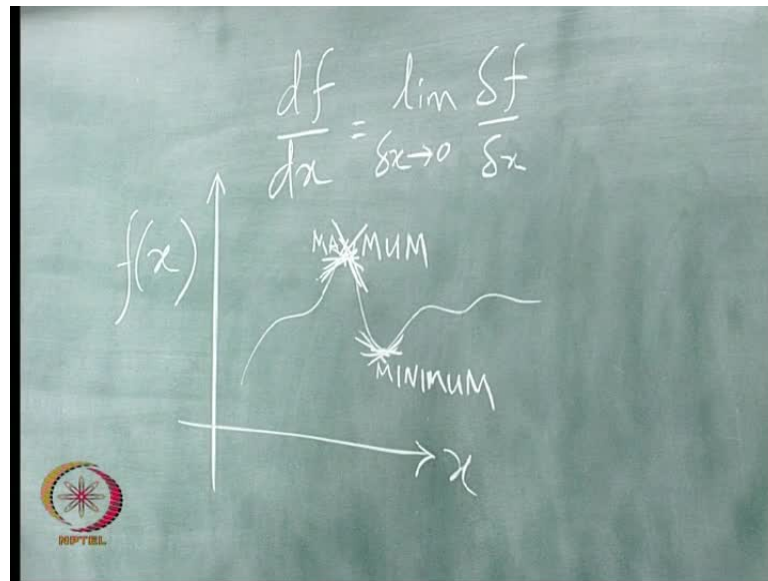 df/dx = lim δx→0 δf/δx
f(x)
MAXIMUM
MINIMUM
x
NPTEL